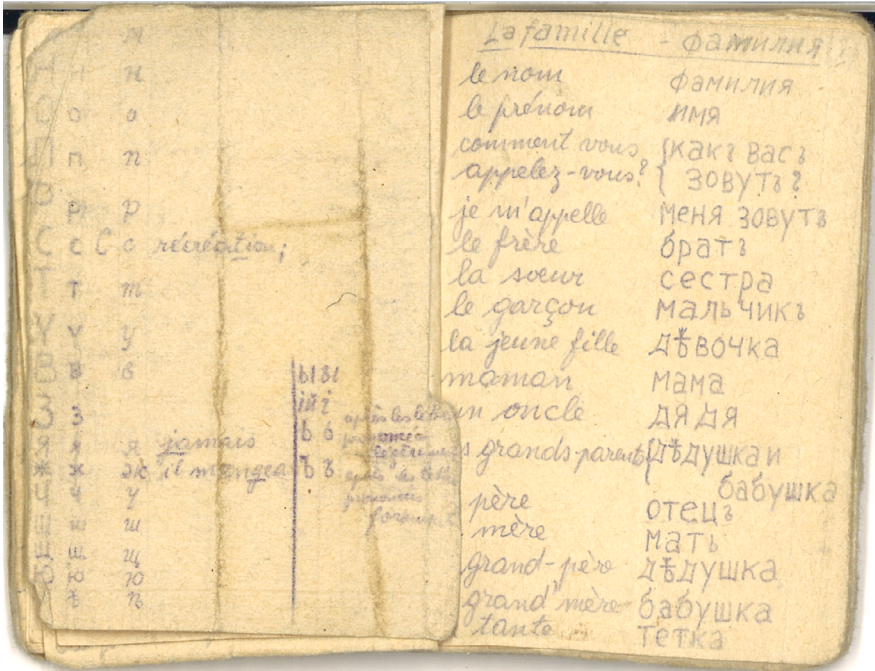 м
н н
о о
п п
р р
с С с récréation;
т т
у у
в в
ы ы
з
я я jamais
ж ж il mangea
ь ь après les
ъ ъ après les
prononcés
ш ш
щ щ
ю ю
ѣ ѣ
La famille - фамилия
le nom фамилия
le prénom имя
comment vous {какъ васъ
appelez-vous? { зовутъ?
je m'appelle меня зовутъ
le frère братъ
la soeur сестра
le garçon мальчикъ
la jeune fille дѣвочка
maman мама
un oncle дядя
s grands-parents {дѣдушка и
бабушка
père отецъ
mère мать
grand-père дѣдушка
grand'mère бабушка
tante тетка